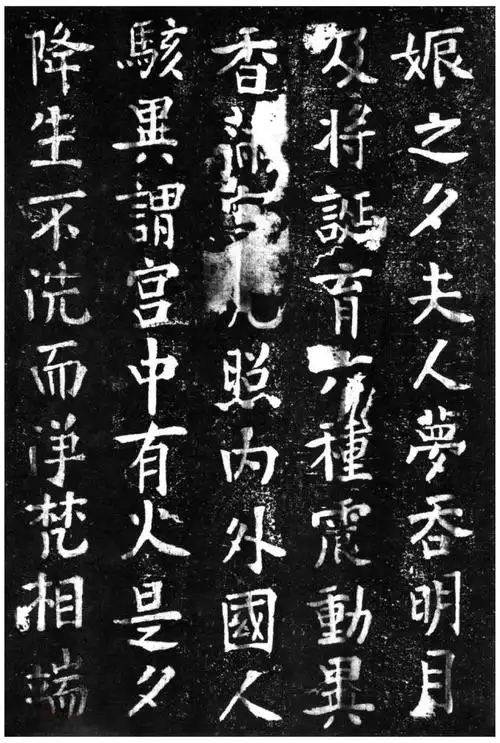 娠之夕夫人夢吞明月
及将誕育六種震動異
香滿室光照内外國人
駭異謂宫中有火是夕
降生不洗而淨梵相端